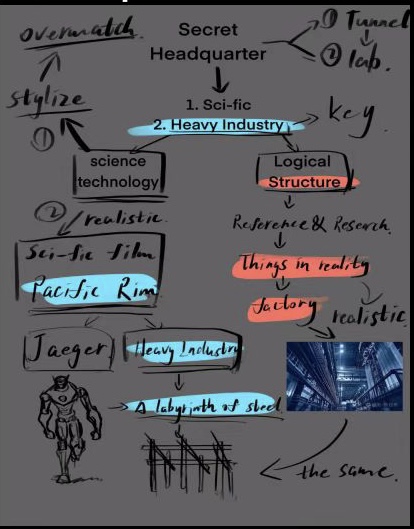 Secret
Headquarter
① Tunnel
② lab.
overmatch.
stylize
①
1. Sci-fic
2. Heavy Industry
key
science
technology
Logical
Structure
② realistic.
Sci-fic film
Pacific Rim
Reference & Research.
Things in reality
factory
realistic
Jaeger
Heavy Industry
A labyrinth of steel
the same.